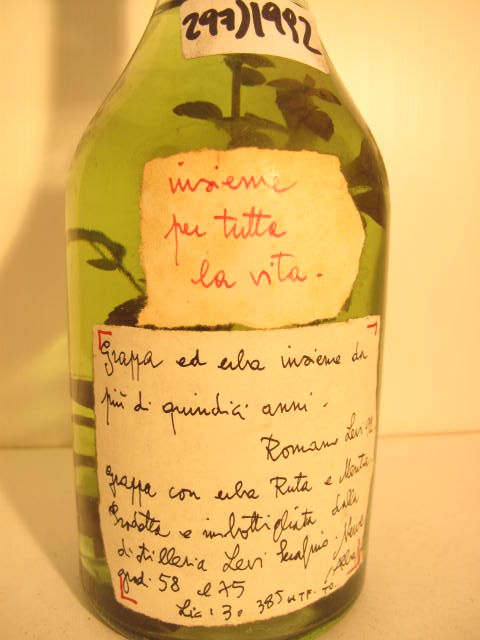 297)1992
insieme
per tutta
la vita.
Grappa ed erba insieme da
più di quindici anni.
Romano Levi
Grappa con erba Ruta e Menta
Prodotta e imbottigliata dalla
distilleria Levi Serafino. Neive
gradi 58 cl 75
Lic: 3 e 385 UTF. TO.